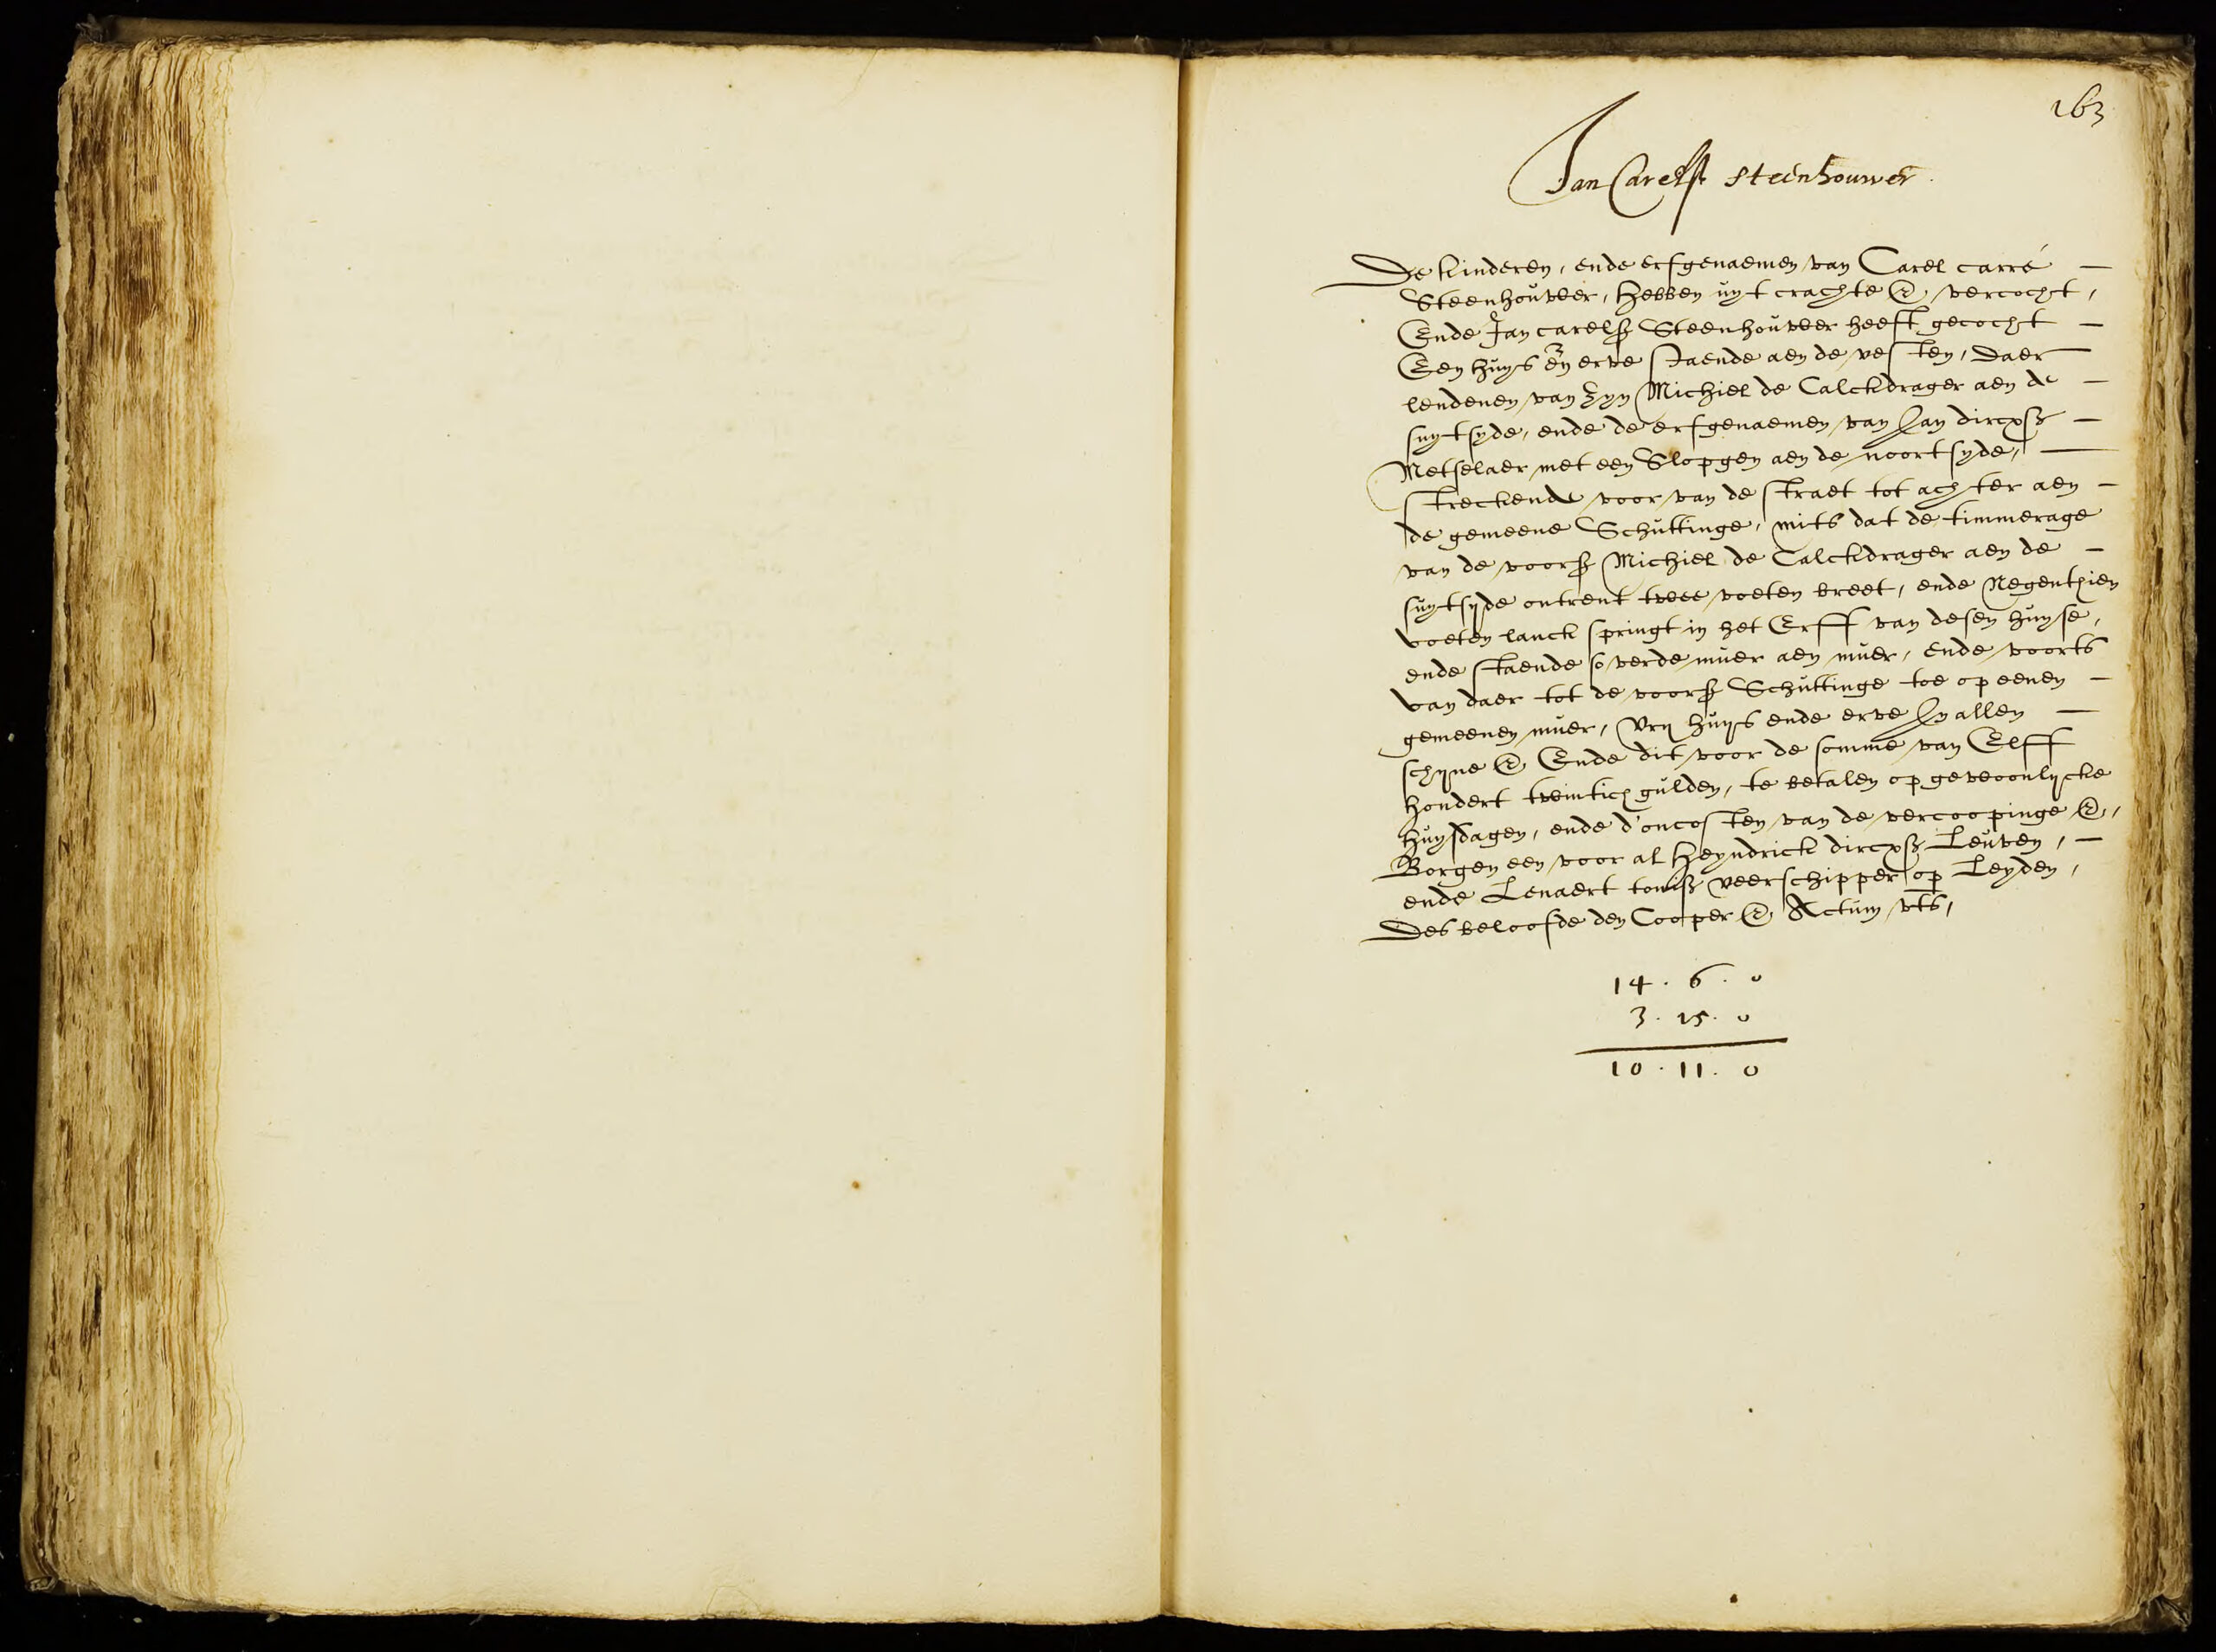 163
Jan Carelsz steenhouwer
De kinderen, ende erfgenaemen van Carel carré
Steenhouwer, hebben uyt crachte &c, vercocht,
Ende Jan carelsz Steenhouwer heeft gecocht
Een huys en erve staende aen de vesten, daer
lendenen van zyn Michiel de Calckdrager aen de
suytsyde, ende de erfgenaemen van Jan dircxsz
Metselaer met een Slopgen aen de noortsyde,
streckende voor van de straet tot achter aen
de gemeene Schuttinge, mits dat de timmerage
van de voorsz Michiel de Calckdrager aen de
suytsijde ontrent twee voeten breet, ende Negenthien
voeten lanck springt in het Erff van desen huyse,
ende staende so verde muer aen muer, ende voorts
van daer tot de voorsz Schuttinge toe op eenen
gemeenen muer, vrij huijs ende erve In allen
schijne &c Ende dit voor de somme van Elff
hondert twintich gulden, te betalen op gewoonlijcke
huysdagen, ende d'oncosten van de vercoopinge &c,
Borgen een voor al Heyndrick dircxsz Leuwen,
ende Lenaert tonisz veerschipper op Leyden,
Des beloofde den Cooper &c Actum uts,
14 . 6 . 0
3 . 15 . 0
10 . 11 . 0